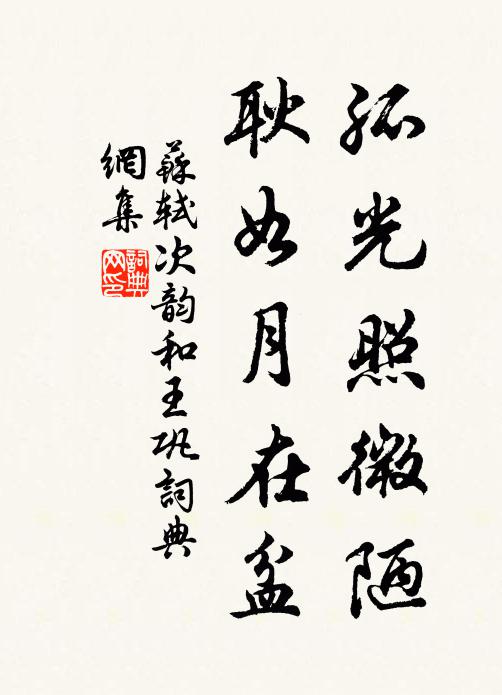 孤光照微陋
耿如月在盆
蘇軾次韵和王巩詞典
網集
詞典
网印